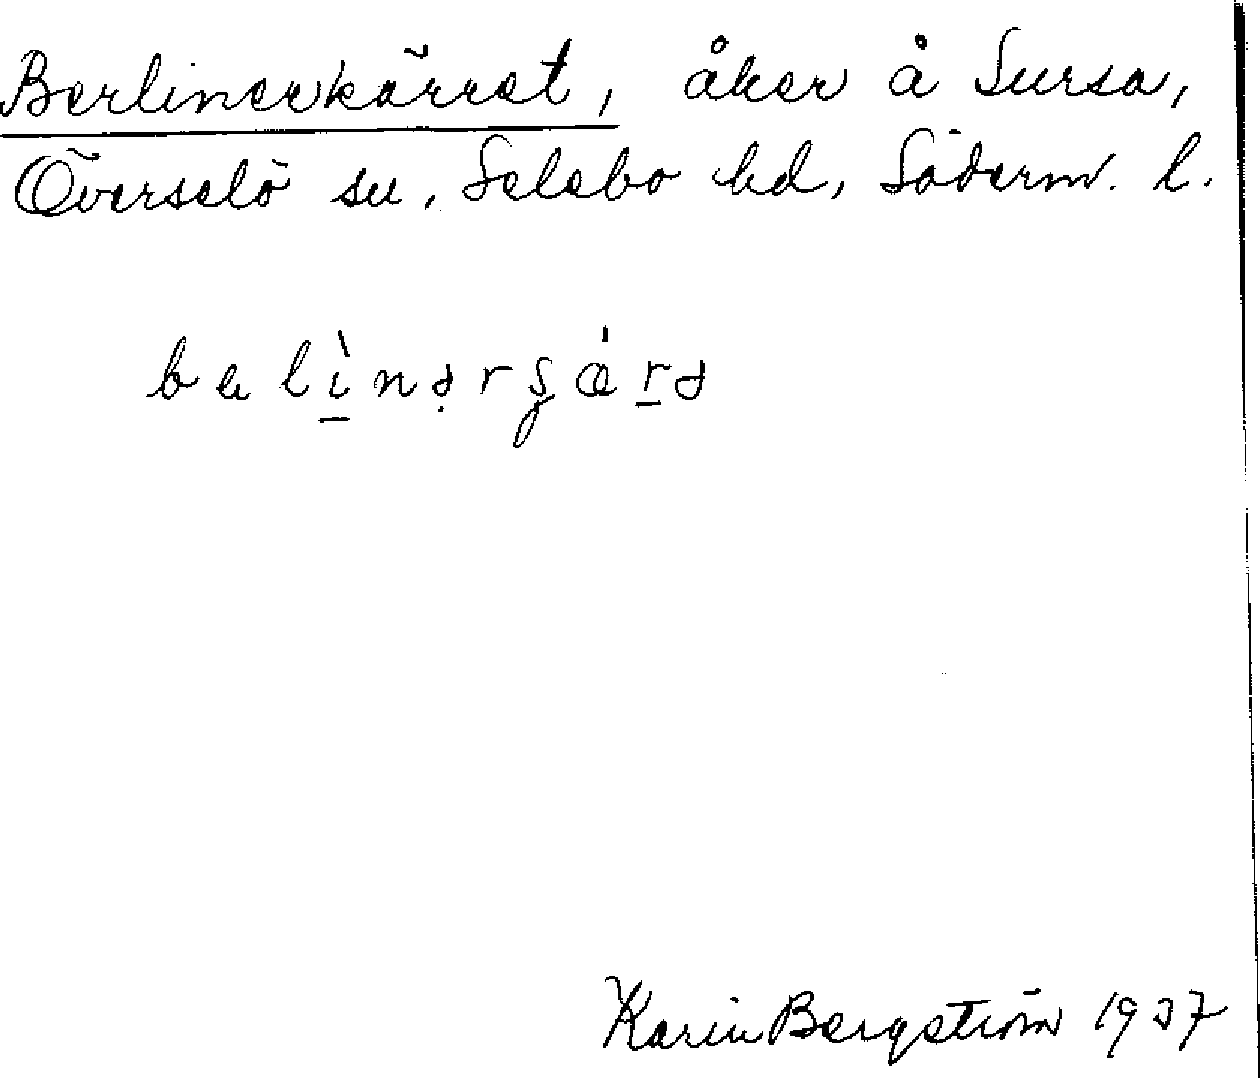 Berlinerkärret, åker å Sursa,
Överselö sn, Selebo hd, Söderm. l.
Karin Bergström 1937